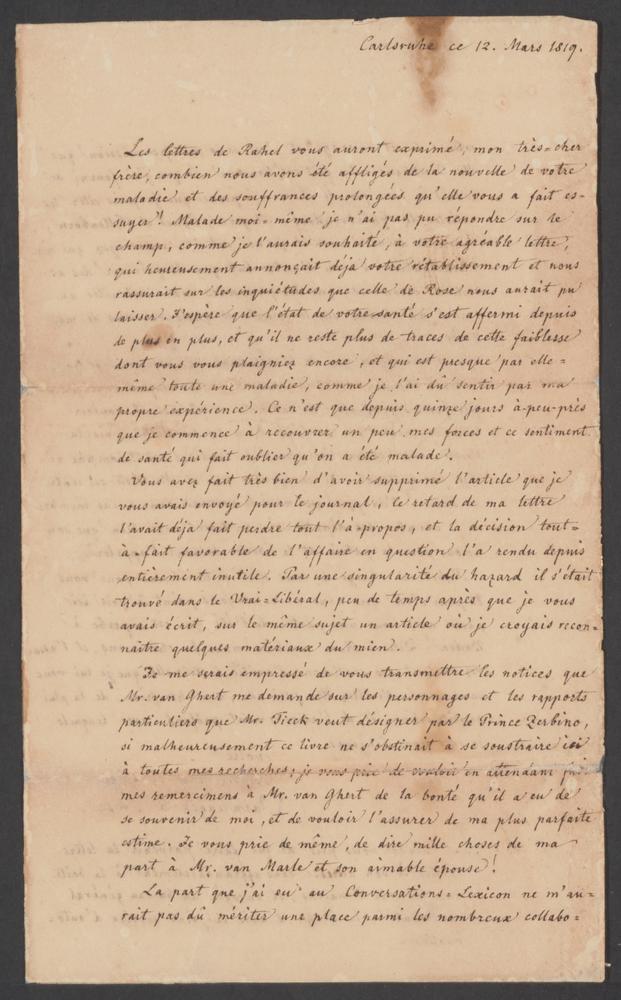 Carlsruhe ce 12. Mars 1819.
Les lettres de Rahel vous auront exprimé, mon très-cher
frère, combien nous avons été affligés de la nouvelle de votre
maladie et des souffrances prolongées qu'elle vous a fait es-
suyer! Malade moi-même je n'ai pas pu répondre sur le
champ, comme je l'aurais souhaité, à votre agréable lettre,
qui heureusement annonçait déja votre rétablissement et nous
rassurait sur les inquiétudes que celle de Rose nous aurait pu
laisser. J'espère que l'état de votre santé s'est affermi depuis
de plus en plus, et qu'il ne reste plus de traces de cette faiblesse
dont vous vous plaigniez encore, et qui est presque par elle=
même toute une maladie, comme je l'ai dû sentir par ma
propre expérience. Ce n'est que depuis quinze jours à-peu-près
que je commence à recouvrer un peu mes forces et ce sentiment
de santé qui fait oublier qu'on a été malade.
Vous avez fait très bien d'avoir supprimé l'article que je
vous avais envoyé pour le journal, le retard de ma lettre
l'avait déja fait perdre tout l'à-propos, et la décision tout=
à-fait favorable de l'affaire en question l'a rendu depuis
entièrement inutile. Par une singularité du hazard il s'était
trouvé dans le Vrai=Libéral, peu de temps après que je vous
avais écrit, sur le même sujet un article où je croyais recon=
naitre quelques matériaux du mien.
Je me serais empressé de vous transmettre les notices que
Mr. van Ghert me demande sur les personnages et les rapports
particuliers que Mr. Tieck veut désigner par le Prince Zerbino,
si malheureusement ce livre ne s'obstinait à se soustraire ici
à toutes mes recherches; je vous prie de vouloir en attendant
mes remercimens à Mr. van Ghert de la bonté qu'il a eu de
se souvenir de moi, et de vouloir l'assurer de ma plus parfaite
estime. Je vous prie de même, de dire mille choses de ma
part à Mr. van Marle et son aimable épouse!
La part que j'ai eu au Conversations=Lexicon ne m'au-
rait pas dû mériter une place parmi les nombreux collabo=